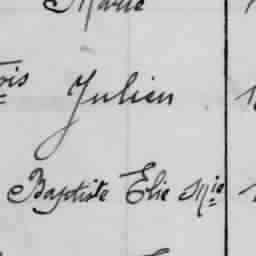 Marie
ois Julien
Baptiste Elie Mie